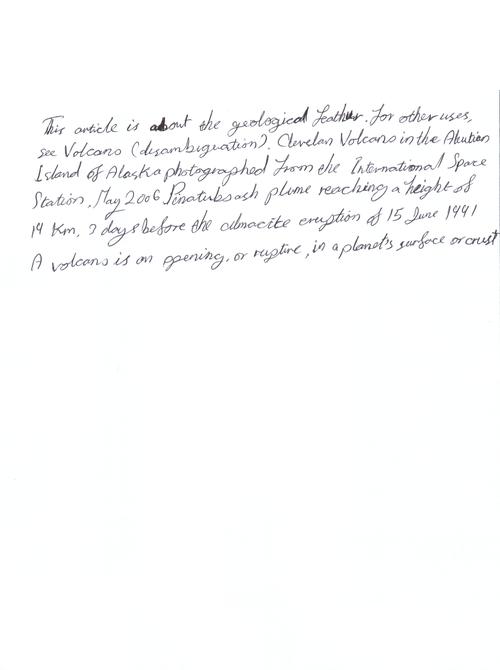 This article is about the geological feathur. For other uses,
see Volcano (disambiguation). Clevelan Volcano in the Aleutian
Island of Alaska photographed from the International Space
Station, May 2006 Pinatubo ash plume reaching a height of
19 Km, 3 days before the climacite eruption of 15 June 1991
A volcano is an opening, or rupture, in a planet's surface or crust